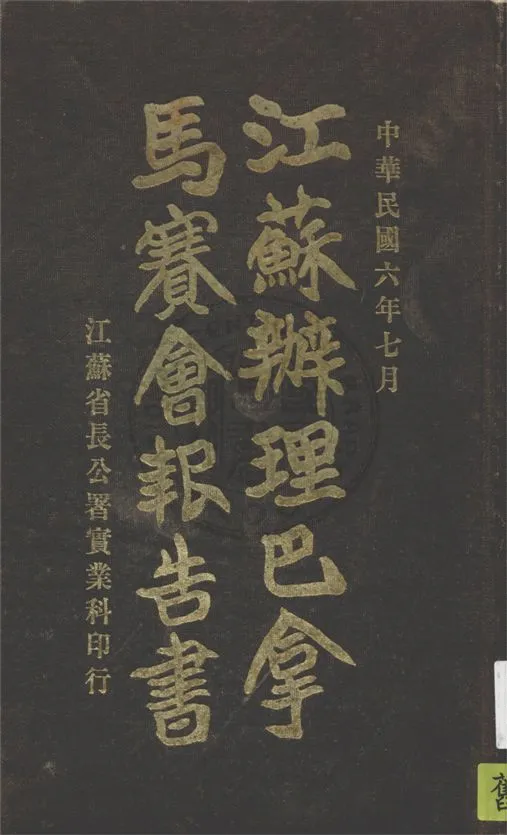 中華民國六年七月
江蘇辦理巴拿
馬賽會報告書
江蘇省長公署實業科印行
舊